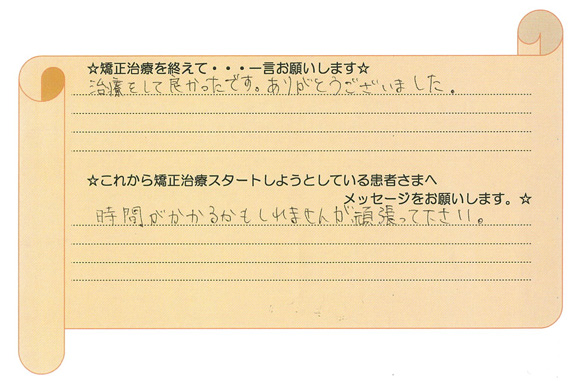 ☆矯正治療を終えて・・・一言お願いします☆
治療をして良かったです。ありがとうございました。
☆これから矯正治療スタートしようとしている患者さまへ
メッセージをお願いします。☆
時間がかかるかもしれませんが頑張って下さい。